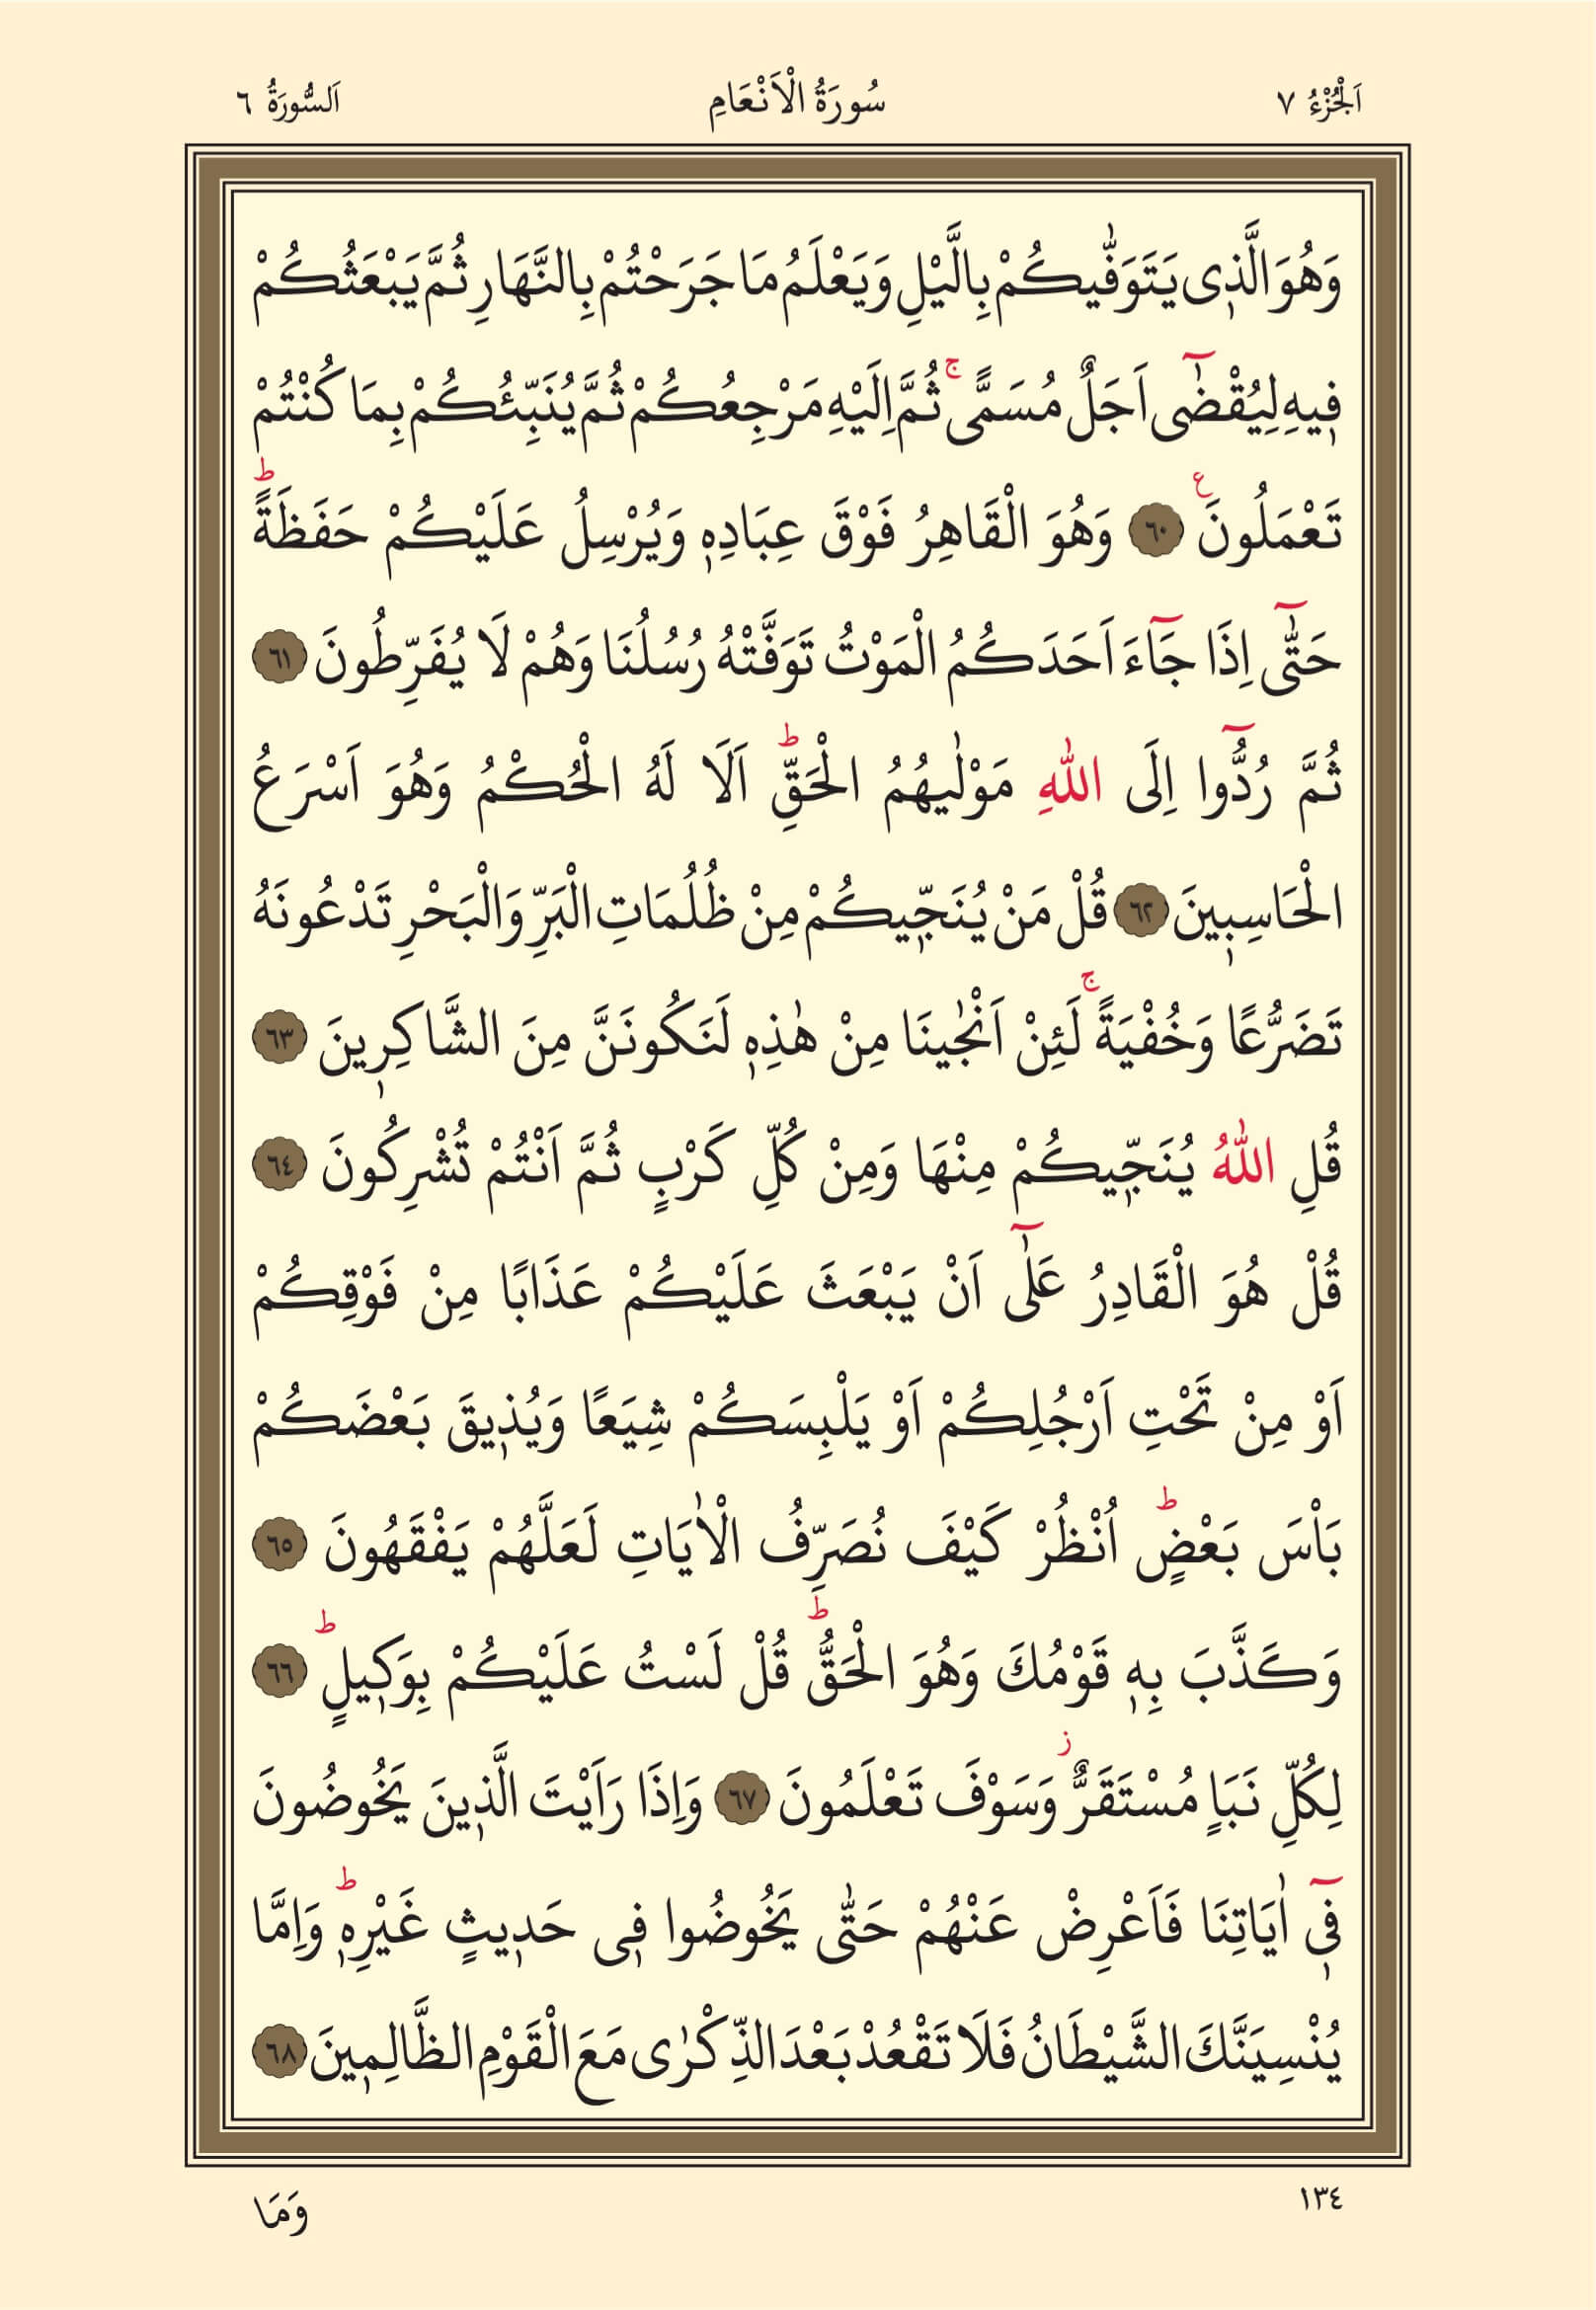 اَلْجُزْءُ ٧ سُورَةُ الْاَنْعَامِ اَلسُّورَةُ ٦
وَهُوَ الَّذ۪ى يَتَوَفّٰيكُمْ بِالَّيْلِ وَيَعْلَمُ مَا جَرَحْتُمْ بِالنَّهَارِ ثُمَّ يَبْعَثُكُمْ
ف۪يهِ لِيُقْضٰٓى اَجَلٌ مُسَمًّىۚ ثُمَّ اِلَيْهِ مَرْجِعُكُمْ ثُمَّ يُنَبِّئُكُمْ بِمَا كُنْتُمْ
تَعْمَلُونَ ع ٦٠ وَهُوَ الْقَاهِرُ فَوْقَ عِبَادِه۪ وَيُرْسِلُ عَلَيْكُمْ حَفَظَةًؕ
حَتّٰٓى اِذَا جَٓاءَ اَحَدَكُمُ الْمَوْتُ تَوَفَّتْهُ رُسُلُنَا وَهُمْ لَا يُفَرِّطُونَ ٦١
ثُمَّ رُدُّٓوا اِلَى اللّٰهِ مَوْلٰيهُمُ الْحَقِّؕ اَلَا لَهُ الْحُكْمُ وَهُوَ اَسْرَعُ
الْحَاسِب۪ينَ ٦٢ قُلْ مَنْ يُنَجّ۪يكُمْ مِنْ ظُلُمَاتِ الْبَرِّ وَالْبَحْرِ تَدْعُونَهُ
تَضَرُّعًا وَخُفْيَةًۚ لَئِنْ اَنْجٰينَا مِنْ هٰذِه۪ لَنَكُونَنَّ مِنَ الشَّاكِر۪ينَ ٦٣
قُلِ اللّٰهُ يُنَجّ۪يكُمْ مِنْهَا وَمِنْ كُلِّ كَرْبٍ ثُمَّ اَنْتُمْ تُشْرِكُونَ ٦٤
قُلْ هُوَ الْقَادِرُ عَلٰٓى اَنْ يَبْعَثَ عَلَيْكُمْ عَذَابًا مِنْ فَوْقِكُمْ
اَوْ مِنْ تَحْتِ اَرْجُلِكُمْ اَوْ يَلْبِسَكُمْ شِيَعًا وَيُذ۪يقَ بَعْضَكُمْ
بَاْسَ بَعْضٍؕ اُنْظُرْ كَيْفَ نُصَرِّفُ الْاٰيَاتِ لَعَلَّهُمْ يَفْقَهُونَ ٦٥
وَكَذَّبَ بِه۪ قَوْمُكَ وَهُوَ الْحَقُّؕ قُلْ لَسْتُ عَلَيْكُمْ بِوَك۪يلٍؕ ٦٦
لِكُلِّ نَبَاٍ مُسْتَقَرٌّ ز وَسَوْفَ تَعْلَمُونَ ٦٧ وَاِذَا رَاَيْتَ الَّذ۪ينَ يَخُوضُونَ
ف۪ٓى اٰيَاتِنَا فَاَعْرِضْ عَنْهُمْ حَتّٰى يَخُوضُوا ف۪ى حَد۪يثٍ غَيْرِه۪ؕ وَاِمَّا
يُنْسِيَنَّكَ الشَّيْطَانُ فَلَا تَقْعُدْ بَعْدَ الذِّكْرٰى مَعَ الْقَوْمِ الظَّالِم۪ينَ ٦٨
١٣٤ وَمَا